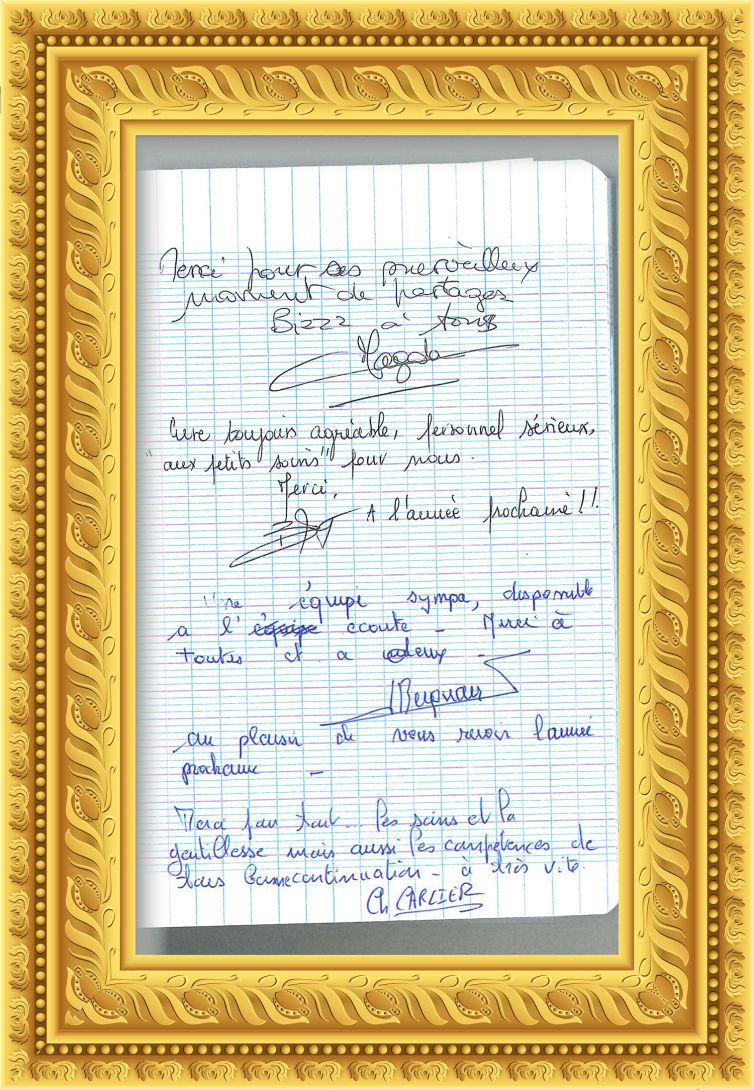 Merci pour ces merveilleux
moment de partages
Bizzz à tous
Magda
Cure toujours agréable, personnel sérieux,
"aux petits soins" pour nous.
Merci,
A l'année prochaine !!
Une équipe sympa, disponible
a l' équipe ecoute - Merci à
toutes et a
au plaisir de vous revoir l'année
prochaine -
Merci pour tout... les soins et la
gentillesse mais aussi les compétences de
tous Bonne continuation - à très vite.
Ch CARLIER